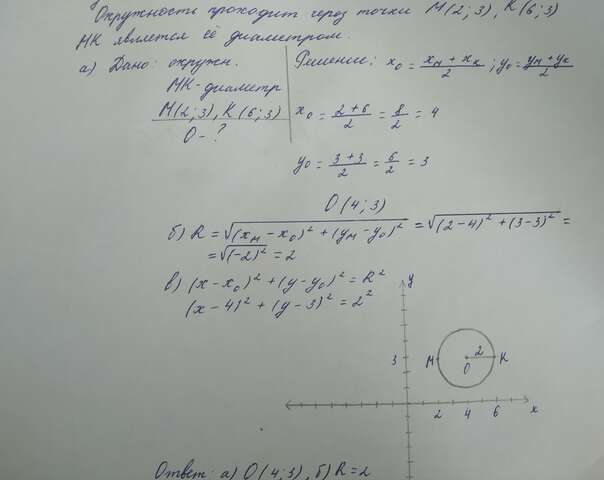 Окружность проходит через точки М(2;3), К(6;3)
МК является её диаметром.
а) Дано: окружн.
МК-диаметр
М(2;3), К(6;3)
О-?
Решение: x₀ = (xм + xк)/2 ; y₀ = (yм + yк)/2
x₀ = (2+6)/2 = 8/2 = 4
y₀ = (3+3)/2 = 6/2 = 3
О(4;3)
б) R = √((xм - x₀)² + (yм - y₀)²) = √((2-4)² + (3-3)²) =
= √((-2)²) = 2
в) (x - x₀)² + (y - y₀)² = R²
(x - 4)² + (y - 3)² = 2²
y
3 М 2 К
О
2 4 6 x
Ответ: а) О(4;3), б) R=2